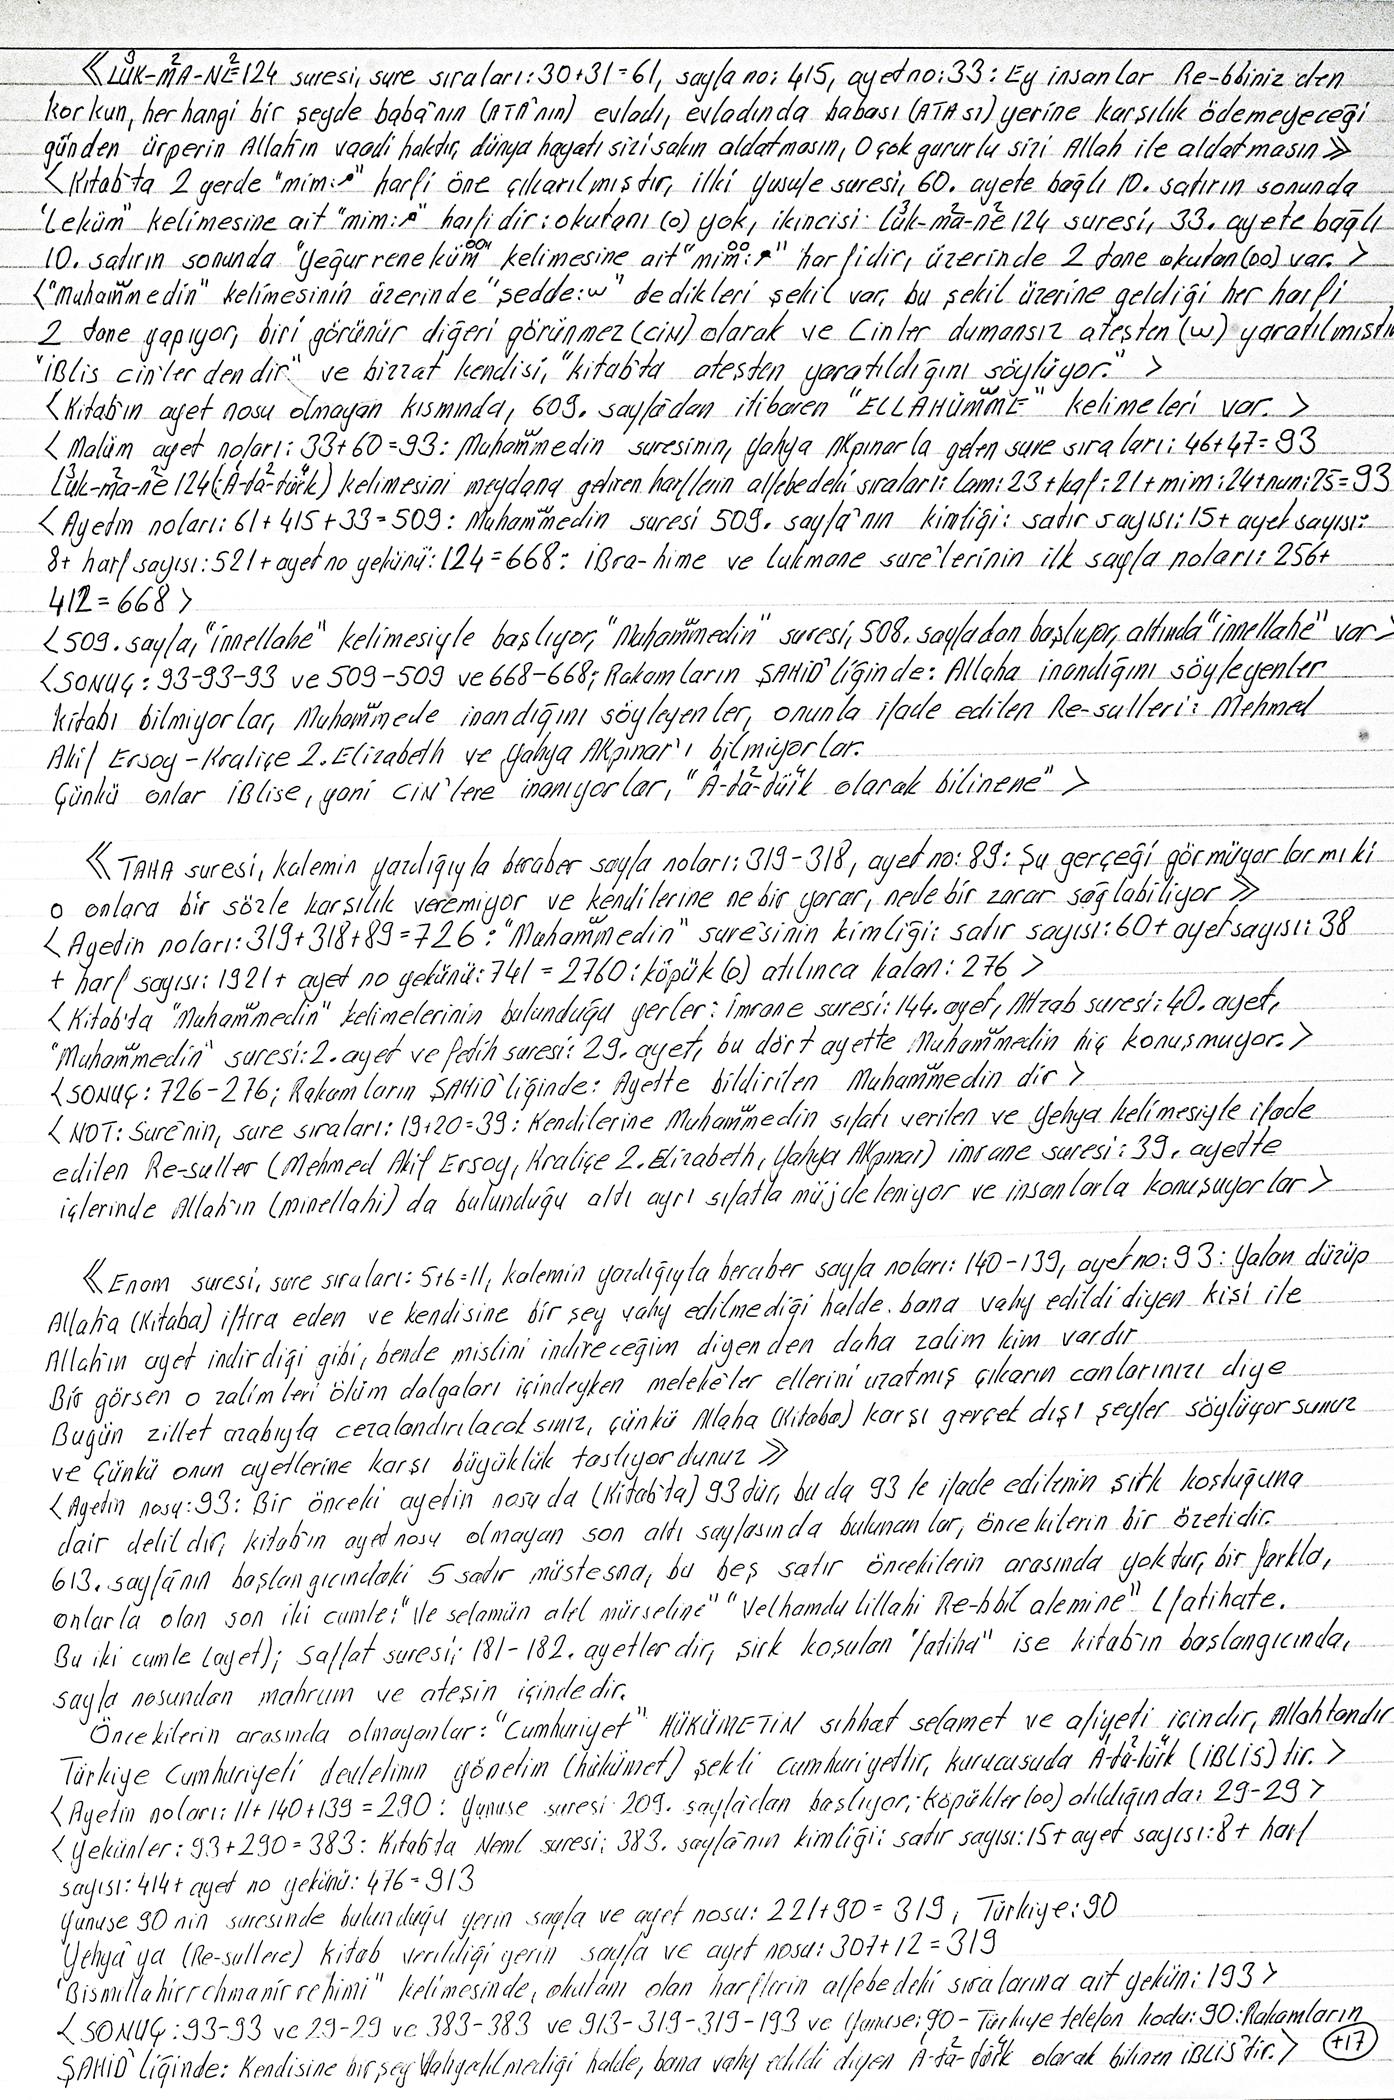 《LÛK-MA-NE 124 suresi, sure sıraları: 30+31=61, sayfa no: 415, ayet no: 33: Ey insanlar Re-bbiniz'den
korkun, herhangi bir şeyde baba'nın (ATA'nın) evladı, evladında babası (ATAsı) yerine karşılık ödemeyeceği
günden ürperin Allah'ın vaadi haktır, dünya hayatı sizi sakın aldatmasın, O çok gururlu sizi Allah ile aldatmasın》
<Kitab'ta 2 yerde "mim:م" harfi öne çıkarılmıştır, ilki Yusufe suresi, 60. ayete bağlı 10. satırın sonunda
"Leküm" kelimesine ait "mim:م" harfidir: okutanı (o) yok, ikincisi: Lûk-ma-ne 124 suresi, 33. ayete bağlı
10. satırın sonunda "Yeğurreneküm" kelimesine ait "mim:م" harfidir, üzerinde 2 tane okutan (oo) var.>
<"Muhammedin" kelimesinin üzerinde "şedde:ω" dedikleri şekil var, bu şekil üzerine geldiği her harfi
2 tane yapıyor, biri görünür diğeri görünmez (CİN) olarak ve Cinler dumansız ateşten (ω) yaratılmıştır
"İBlis cin'lerdendir" ve bizzat kendisi, "kitab'ta ateşten yaratıldığını söylüyor.">
<Kitab'ın ayet nosu olmayan kısmında, 609. sayfa'dan itibaren "ELLAHÜMME" kelimeleri var.>
<Malüm ayet noları: 33+60=93: Muhammedin suresinin, Yahya AKpınar'la gelen sure sıraları: 46+47=93
Lûk-ma-ne 124 (:A-ta-türk) kelimesini meydana getiren harflerin alfebedeki sıraları: lam: 23+kaf: 21+mim: 24+nun: 25=93
<Ayetin noları: 61+415+33=509: Muhammedin suresi 509. sayfa'nın kimliği: satır sayısı: 15+ayet sayısı:
8+ harf sayısı: 521+ayet no yekünü: 124=668: İBra-hime ve Lukmane sure'lerinin ilk sayfa noları: 256+
412=668>
<509. sayfa, "innellahe" kelimesiyle başlıyor, "Muhammedin" suresi, 508. sayfadan başlıyor, altında "innellahe" var>
<SONUÇ: 93-93-93 ve 509-509 ve 668-668; Rakamların ŞAHİD'liğinde: Allaha inandığını söyleyenler
kitabı bilmiyorlar, Muhammede inandığını söyleyenler, onunla ifade edilen Re-sulleri: Mehmed
Akif Ersoy-Kraliçe 2. Elizabeth ve Yahya AKpınar'ı bilmiyorlar.
Çünkü onlar İBlise, yani CİN'lere inanıyorlar, "A-ta-türk olarak bilinene">
《TAHA suresi, kalemin yazdığıyla beraber sayfa noları: 319-318, ayet no: 89: Şu gerçeği görmüyorlar mı ki
o onlara bir sözle karşılık veremiyor ve kendilerine ne bir yarar, nede bir zarar sağlabiliyor》
<Ayetin noları: 319+318+89=726: "Muhammedin" sure'sinin kimliği: satır sayısı: 60+ayet sayısı: 38
+ harf sayısı: 1921+ ayet no yekünü: 741=2760: köpük (o) atılınca kalan: 276>
<Kitab'ta "Muhammedin" kelimelerinin bulunduğu yerler: İmrane suresi: 144. ayet, Ahzab suresi: 40. ayet,
"Muhammedin" suresi: 2. ayet ve fetih suresi: 29. ayet, bu dört ayette Muhammedin hiç konuşmuyor.>
<SONUÇ: 726-276; Rakamların ŞAHİD'liğinde: Ayette bildirilen Muhammedin dir>
<NOT: Sure'nin, sure sıraları: 19+20=39: Kendilerine Muhammedin sıfatı verilen ve Yehya kelimesiyle ifade
edilen Re-suller (Mehmed Akif Ersoy, Kraliçe 2. Elizabeth, Yahya AKpınar) imrane suresi: 39. ayette
içlerinde Allah'ın (minellahi) da bulunduğu altı ayrı sıfatla müjdeleniyor ve insanlarla konuşuyorlar>
《Enam suresi, sure sıraları: 5+6=11, kalemin yazdığıyla beraber sayfa noları: 140-139, ayet no: 93: Yalan düzüp
Allah'a (kitaba) iftira eden ve kendisine bir şey vahy edilmediği halde. bana vahy edildi diyen kişi ile
Allah'ın ayet indirdiği gibi, bende mislini indireceğim diyenden daha zalim kim vardır
Bir görsen o zalimleri ölüm dalgaları içindeyken meleke'ler ellerini uzatmış çıkarın canlarınızı diye
Bugün zillet azabıyla cezalandırılacaksınız, çünkü Allaha (Kitaba) karşı gerçek dışı şeyler söylüyorsunuz
ve Çünkü onun ayetlerine karşı büyüklük taslıyordunuz》
<Ayetin nosu: 93: Bir önceki ayetin nosu da (Kitab'ta) 93 dür, bu da 93 le ifade edilenin şirk koştuğuna
dair delildir, kitab'ın ayet nosu olmayan son altı sayfasında bulunanlar, öncekilerin bir özetidir.
613. sayfa'nın başlangıcındaki 5 satır müstesna, bu beş satır öncekilerin arasında yoktur, bir farkla,
onlarla olan son iki cumle: "Ve selamün alel mürseline" "Velhamdu lillahi Re-bbil alemine" Lfatihate.
Bu iki cumle (ayet); Saffat suresi; 181-182. ayetlerdir, şirk koşulan "fatiha" ise kitab'ın başlangıcında,
sayfa nosundan mahrum ve ateşin içindedir.
Öncekilerin arasında olmayanlar: "Cumhuriyet" HÜKÜMETİN sıhhat selamet ve afiyeti içindir, Allahtandır
Türkiye Cumhuriyeti devletinin yönetim (hükümet) şekli cumhuriyettir, kurucusuda A-ta-türk (İBLİS) tir.>
<Ayetin noları: 11+140+139=290: Yunuse suresi 209. sayfa'dan başlıyor; köpükler (oo) atıldığında: 29-29>
<Yekünler: 93+290=383: Kitab'ta Neml suresi; 383. sayfa'nın kimliği: satır sayısı: 15+ ayet sayısı: 8+ harf
sayısı: 414+ ayet no yekünü: 476=913
Yunuse 90 nın suresinde bulunduğu yerin sayfa ve ayet nosu: 221+90=319, Türkiye: 90
Yehya'ya (Re-sullere) kitab verildiği yerin sayfa ve ayet nosu: 307+12=319
"Bismillahirrehmanirrehimi" kelimesinde, okutanı olan harflerin alfebedeki sıralarına ait yekün: 193>
<SONUÇ: 93-93 ve 29-29 ve 383-383 ve 913-319-319-193 ve Yunuse: 90-Türkiye telefon kodu: 90: Rakamların
ŞAHİD'liğinde: Kendisine bir şey Vahyedilmediği halde, bana vahy edildi diyen A-ta-türk olarak bilinen İBLİS'tir.> +17